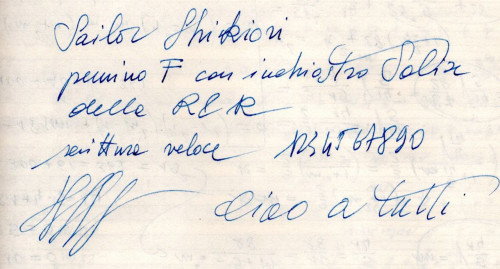 Sailor Shikiori
pennino F con inchiostro Salix
della R & R
scrittura veloce 1234567890
Ciao a tutti